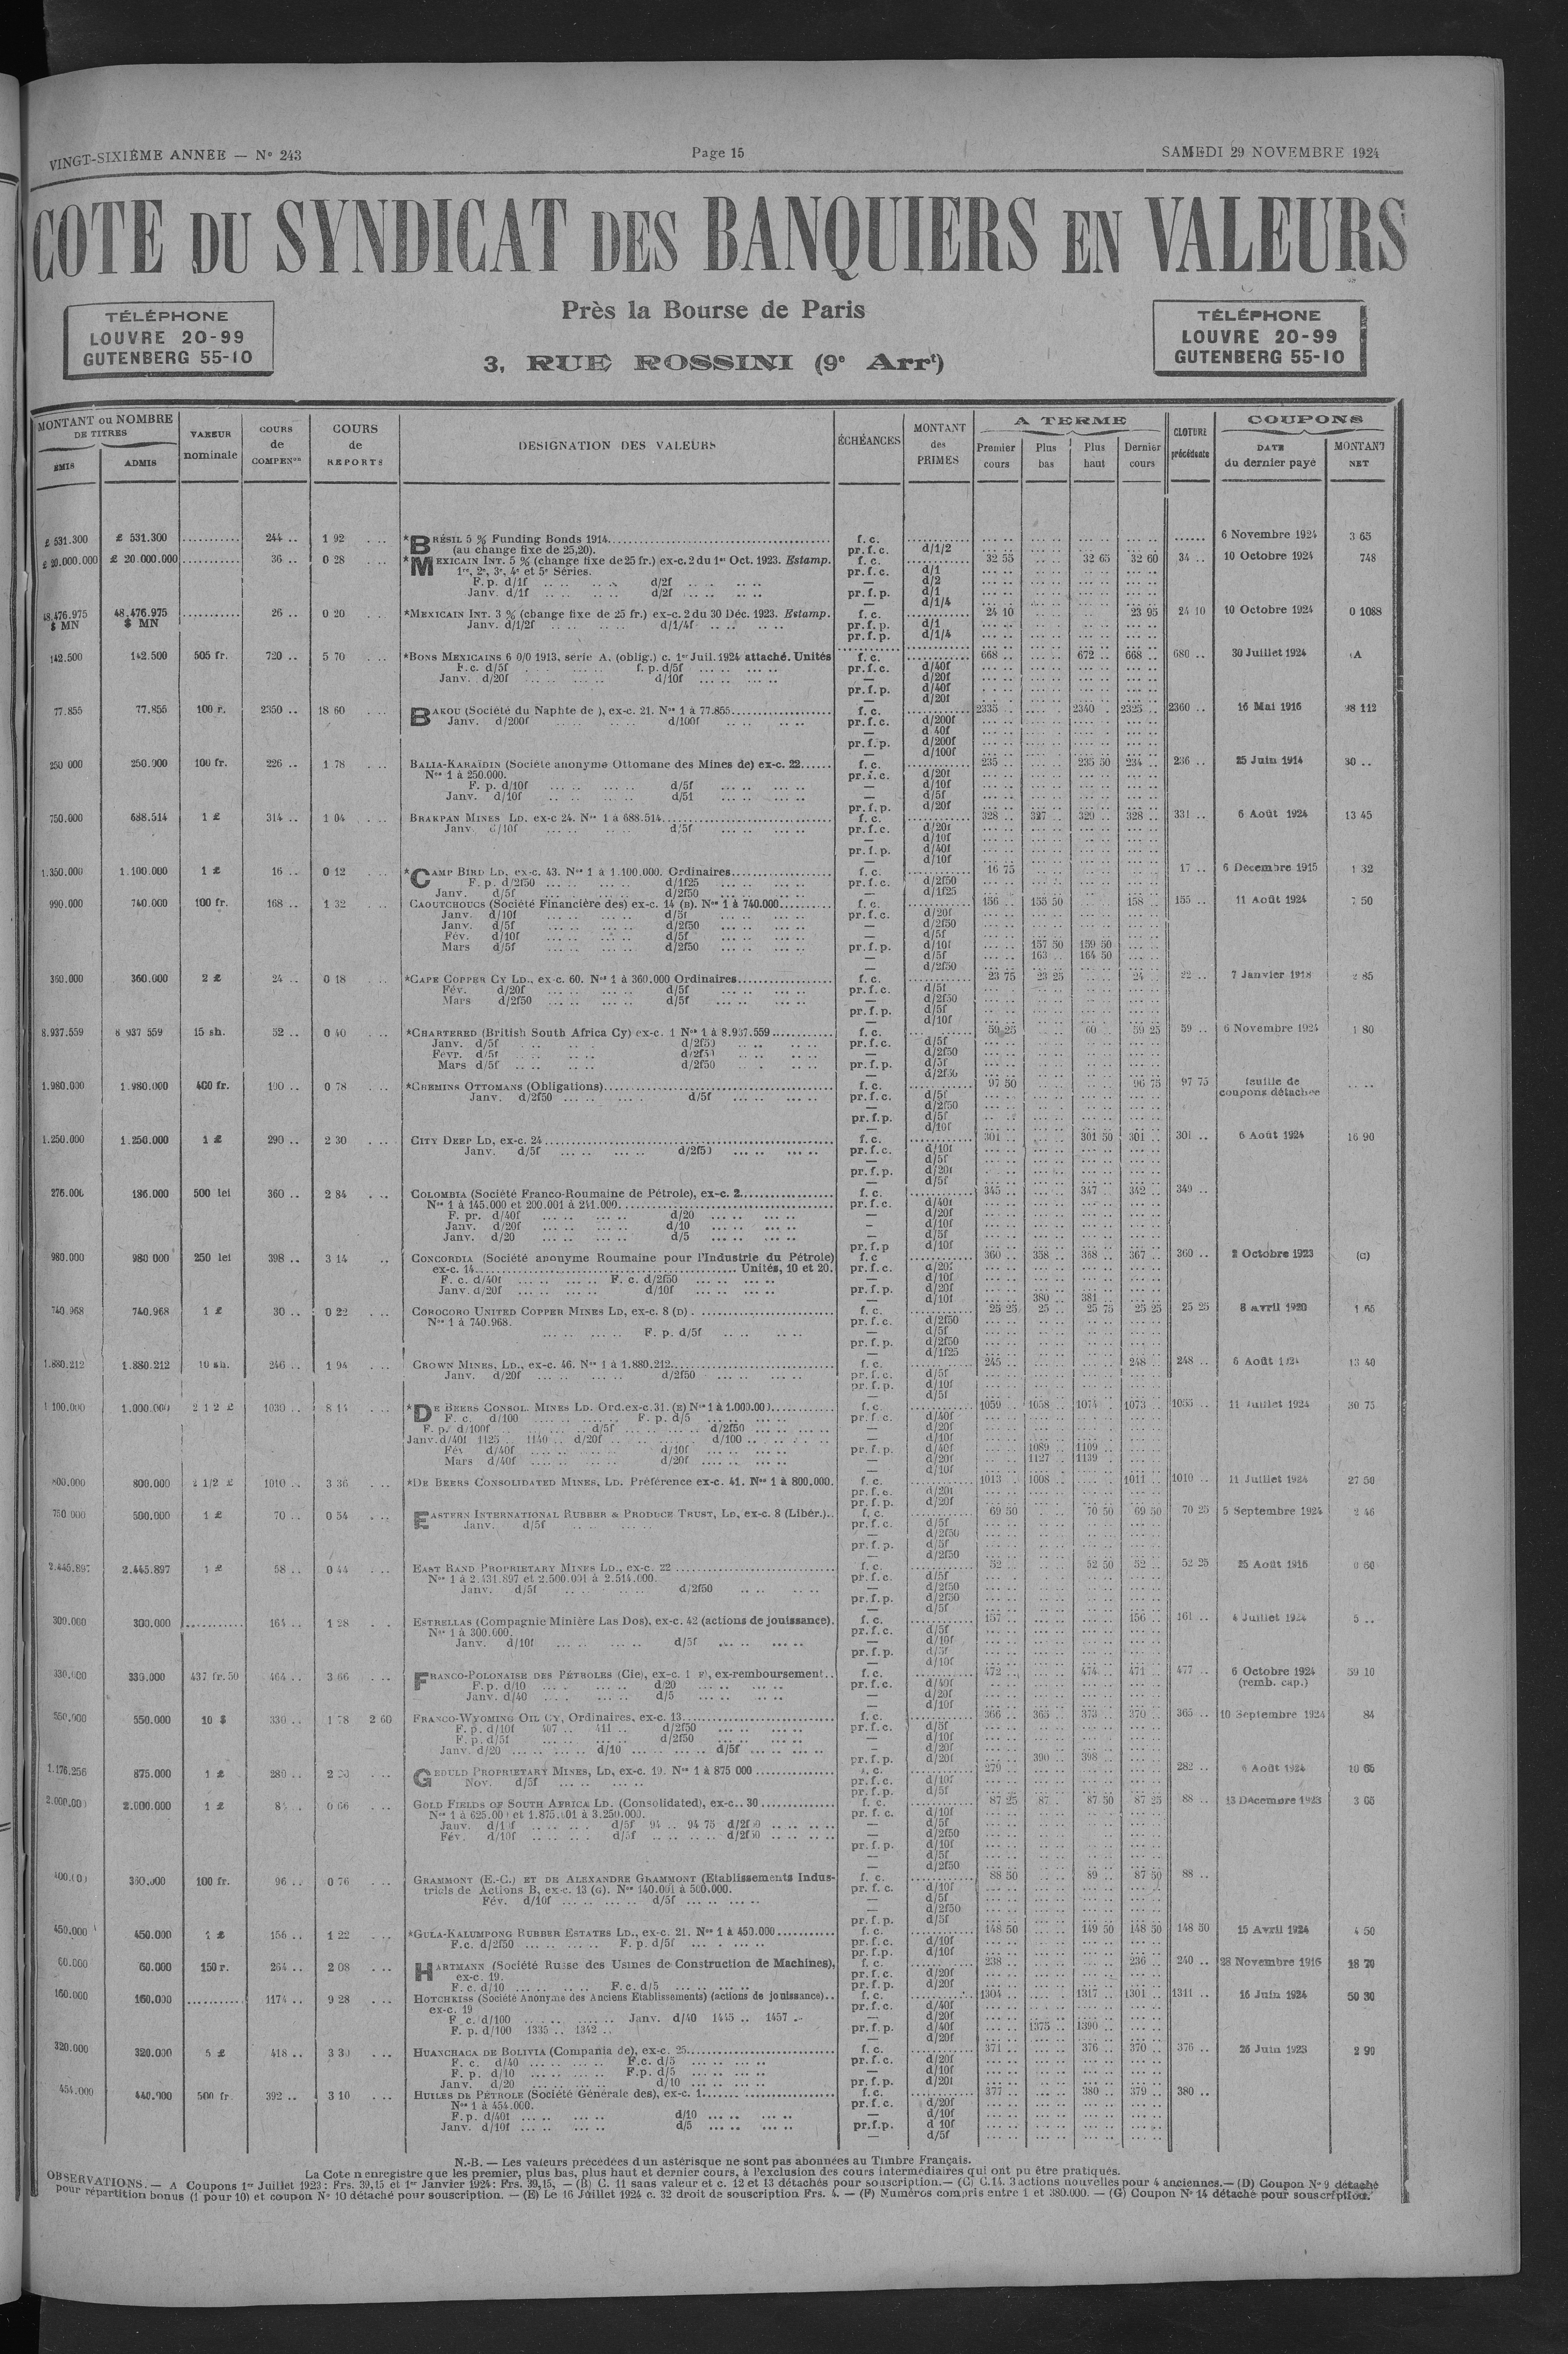 VINGT-SIXIÈME ANNÉE — N° 243
Page 15
SAMEDI 29 NOVEMBRE 1924
COTE DU SYNDICAT DES BANQUIERS EN VALEURS
Près la Bourse de Paris
3, RUE ROSSINI (9e Arrt)
TÉLÉPHONE
LOUVRE 20-99
GUTENBERG 55-10
TÉLÉPHONE
LOUVRE 20-99
GUTENBERG 55-10
MONTANT ou NOMBRE DE TITRES
ÉMIS ADMIS
VALEUR nominale
COURS de COMPENon
COURS de REPORTS
DESIGNATION DES VALEURS
ÉCHÉANCES
MONTANT des PRIMES
A TERME
Premier cours Plus bas Plus haut Dernier cours
CLOTURE précédente
COUPONS
DATE du dernier payé MONTANT NET
£ 531.300 £ 531.300 ........... 244 .. 1 92 *BRÉSIL 5 % Funding Bonds 1914 f. c. 6 Novembre 1924 3 65
(au change fixe de 25,20). pr. f. c. d/1/2
£ 20.000.000 £ 20.000.000 ........... 36 .. 0 28 *MEXICAIN INT. 5 % (change fixe de 25 fr.) ex-c. 2 du 1er Oct. 1923. Estamp. f. c. 32 55 32 65 32 60 34 .. 10 Octobre 1924 748
1re, 2e, 3e, 4e et 5e Séries. pr. f. c. d/1
F. p. d/1f d/2f — d/2
Janv. d/1f d/2f pr. f. p. d/1
— d/1/4
48.476.975 $ MN 48.476.975 $ MN ........... 26 .. 0 20 *MEXICAIN INT. 3 % (change fixe de 25 fr.) ex-c. 2 du 30 Déc. 1923. Estamp. f. c. 24 10 23 95 24 10 10 Octobre 1924 0 1088
Janv. d/1/2f d/1/4f pr. f. p. d/1
pr. f. p. d/1/4
142.500 142.500 505 fr. 720 .. 5 70 *BONS MEXICAINS 6 0/0 1913, série A. (oblig.) c. 1er Juil. 1924 attaché. Unités f. c. 668 .. 672 .. 668 .. 680 .. 30 Juillet 1924 A
F. c. d/5f f. p. d/5f pr. f. c. d/40f
Janv. d/20f d/10f — d/20f
pr. f. p. d/40f
— d/20f
77.855 77.855 100 r. 2350 .. 18 60 BAKOU (Société du Naphte de ), ex-c. 21. Nos 1 à 77.855 f. c. 2335 .. 2340 . 2325 .. 2360 .. 16 Mai 1916 98 112
Janv. d/200f d/100f pr. f. c. d/200f
— d 40f
pr. f. p. d/200f
— d/100f
250 000 250.000 100 fr. 226 .. 1 78 BALIA-KARAÏDIN (Société anonyme Ottomane des Mines de) ex-c. 22 f. c. 235 .. 235 50 234 .. 236 .. 25 Juin 1914 30 ..
Nos 1 à 250.000. pr. f. c. d/20f
F. p. d/10f d/5f — d/10f
Janv. d/10f d/5f — d/5f
pr. f. p. d/20f
750.000 688.514 1 £ 314 .. 1 04 BRAKPAN MINES LD. ex-c 24. Nos 1 à 688.514 f. c. 328 .. 327 .. 329 .. 328 .. 331 .. 6 Août 1924 13 45
Janv d/10f d/5f pr. f. c. d/20f
— d/10f
pr. f. p. d/40f
— d/10f
1.350.000 1.100.000 1 £ 16 .. 0 12 *CAMP BIRD LD, ex-c. 43. Nos 1 à 1.100.000. Ordinaires f. c. 16 75 17 .. 6 Décembre 1915 1 32
F. p. d/2f50 d/1f25 pr. f. c. d/2f50
Janv. d/5f d/2f50 — d/1f25
990.000 740.000 100 fr. 168 .. 1 32 CAOUTCHOUCS (Société Financière des) ex-c. 14 (B). Nos 1 à 740.000 f. c. 156 .. 155 50 158 .. 155 .. 11 Août 1924 7 50
Janv. d/10f d/5f pr. f. c. d/20f
Janv. d/5f d/2f50 — d/2f50
Fév. d/10f d/5f — d/5f
Mars d/5f d/2f50 pr. f. p. d/10f 157 50 159 50
— d/5f 163 .. 164 50
— d/2f50
360.000 360.000 2 £ 24 .. 0 18 *CAPE COPPER CY LD., ex-c. 60. Nos 1 à 360.000 Ordinaires f. c. 23 75 23 25 24 .. 22 .. 7 Janvier 1918 2 85
Fév. d/20f d/5f pr. f. c. d/5f
Mars d/2f50 d/5f — d/2f50
pr. f. p. d/5f
— d/10f
8.937.559 8 937 559 15 sh. 52 .. 0 40 *CHARTERED (British South Africa Cy) ex-c. 1 Nos 1 à 8.937.559 f. c. 59 25 60 .. 59 25 59 .. 6 Novembre 1924 1 80
Janv. d/5f d/2f50 pr. f. c. d/5f
Févr. d/5f d/2f50 — d/2f50
Mars d/5f d/2f50 pr. f. p. d/5f
— d/2f50
1.980.000 1.980.000 400 fr. 100 .. 0 78 *CHEMINS OTTOMANS (Obligations) f. c. 97 50 96 75 97 75 feuille de coupons détachée
Janv. d/2f50 d/5f pr. f. c. d/5f
— d/2f50
pr. f. p. d/5f
— d/10f
1.250.000 1.250.000 1 £ 290 .. 2 30 CITY DEEP LD, ex-c. 24 f. c. 301 .. 301 50 301 .. 301 .. 6 Août 1924 16 90
Janv. d/5f d/2f50 pr. f. c. d/10f
— d/5f
pr. f. p. d/20f
— d/5f
276.000 186.000 500 lei 360 .. 2 84 COLOMBIA (Société Franco-Roumaine de Pétrole), ex-c. 2 f. c. 345 .. 347 .. 342 .. 349 ..
Nos 1 à 145.000 et 200.001 à 241.000 pr. f. c. d/40f
F. pr. d/40f d/20 — d/20f
Janv. d/20f d/10 — d/10f
Janv. d/20 d/5 — d/5f
pr. f. p d/10f
980.000 980 000 250 lei 398 .. 3 14 CONCORDIA (Société anonyme Roumaine pour l'Industrie du Pétrole) f. c 360 .. 358 .. 368 .. 367 .. 360 .. 2 Octobre 1923 (C)
ex-c. 14 Unités, 10 et 20. pr. f. c. d/20f
F. c. d/40f F. c. d/2f50 — d/10f
Janv. d/20f d/10f pr. f. p. d/20f
— d/10f 380 .. 381 ..
740.968 740.968 1 £ 30 .. 0 22 COROCORO UNITED COPPER MINES LD, ex-c. 8 (D) f. c. 25 25 25 .. 25 75 25 25 25 25 8 avril 1920 1 65
Nos 1 à 740.968. pr. f. c. d/2f50
F. p. d/5f — d/5f
pr. f. p. d/2f50
— d/1f25
1.880.212 1.880.212 10 sh. 246 .. 1 94 CROWN MINES, LD., ex-c. 46. Nos 1 à 1.880.212 f. c. 245 .. 248 .. 248 .. 6 Août 1924 13 40
Janv. d/20f d/2f50 pr. f. c. d/5f
pr. f. p. d/10f
— d/5f
1 100.000 1.000.000 2 1 2 £ 1030 .. 8 14 *DE BEERS CONSOL. MINES LD. Ord. ex-c. 31. (E) Nos 1 à 1.000.000 f. c. 1059 .. 1058 .. 1074 .. 1073 .. 1055 .. 11 Juillet 1924 30 75
F. c. d/100 F. p. d/5 pr. f. c. d/40f
F. p. d/100f d/5f d/2f50 — d/20f
Janv. d/40f 1125 .. 1140 .. d/20f d/100 — d/10f
Fév d/40f d/10f pr. f. p. d/40f 1089 .. 1109 ..
Mars d/40f d/20f — d/20f 1127 .. 1139 ..
— d/10f
800.000 800.000 2 1/2 £ 1010 .. 3 36 *DE BEERS CONSOLIDATED MINES, LD. Préférence ex-c. 41. Nos 1 à 800.000. f. c. 1013 .. 1008 .. 1011 .. 1010 .. 11 Juillet 1924 27 50
pr. f. c. d/20f
pr. f. p. d/20f
750 000 500.000 1 £ 70 .. 0 54 EASTERN INTERNATIONAL RUBBER & PRODUCE TRUST, LD, ex-c. 8 (Libér.) f. c. 69 50 70 50 69 50 70 25 5 Septembre 1924 2 46
Janv. d/5f pr. f. c. d/5f
— d/2f50
pr. f. p. d/5f
— d/2f50
2.445.897 2.445.897 1 £ 58 .. 0 44 EAST RAND PROPRIETARY MINES LD., ex-c. 22 f. c. 52 .. 52 50 52 .. 52 25 25 Août 1916 0 60
Nos 1 à 2.431.897 et 2.500.001 à 2.514.000. pr. f. c. d/5f
Janv. d/5f d/2f50 — d/2f50
pr. f. p. d/2f50
— d/5f
300.000 300.000 ........... 164 .. 1 28 ESTRELLAS (Compagnie Minière Las Dos), ex-c. 42 (actions de jouissance). f. c. 157 .. 156 .. 161 .. 4 Juillet 1924 5 ..
Nos 1 à 300.000. pr. f. c. d/5f
Janv. d/10f d/5f — d/10f
pr. f. p. d/5f
— d/10f
330.000 330.000 437 fr. 50 464 .. 3 66 FRANCO-POLONAISE DES PÉTROLES (Cie), ex-c. 1 F), ex-remboursement f. c. 472 .. 474 .. 471 .. 477 .. 6 Octobre 1924 59 10
F. p. d/10 d/20 pr. f. c. d/40f (remb. cap.)
Janv. d/40 d/5 — d/20f
— d/10f
550.000 550.000 10 $ 330 .. 1 78 2 60 FRANCO-WYOMING OIL CY, Ordinaires, ex-c. 13 f. c. 366 .. 365 .. 373 .. 370 .. 365 .. 10 Septembre 1924 84
F. p. d/10f 407 .. 411 .. d/2f50 pr. f. c. d/5f
F. p. d/5f d/2f50 — d/10f
Janv. d/20 d/10 d/5f — d/20f
pr. f. p. d/20f 390 .. 398 ..
1.176.256 875.000 1 £ 280 .. GEDULD PROPRIETARY MINES, LD, ex-c. 19. Nos 1 à 875 000 f. c. 279 .. 282 .. 6 Août 1924 10 65
Nov. d/5f pr. f. c. d/10f
pr. f. p. d/5f
2.000.000 2.000.000 1 £ 0 66 GOLD FIELDS OF SOUTH AFRICA LD. (Consolidated), ex-c. 30 f. c. 87 25 87 .. 87 50 87 25 88 .. 13 Décembre 1923 3 65
Nos 1 à 625.000 et 1.875.001 à 3.250.000. pr. f. c. d/10f
Janv. d/10f d/5f 94 .. 94 75 d/2f50 — d/5f
Fév. d/10f d/5f d/2f50 — d/2f50
pr. f. p. d/10f
— d/5f
— d/2f50
400.000 360.000 100 fr. 96 .. 0 76 GRAMMONT (E.-C.) ET DE ALEXANDRE GRAMMONT (Etablissements Indus- f. c. 88 50 89 .. 87 50 88 ..
triels de Actions B, ex-c. 13 (G). Nos 140.001 à 500.000. pr. f. c. d/10f
Fév. d/10f d/5f — d/5f
— d/2f50
pr. f. p. d/5f
450.000 450.000 1 £ 156 .. 1 22 *GULA-KALUMPONG RUBBER ESTATES LD., ex-c. 21. Nos 1 à 450.000 f. c. 148 50 149 50 148 50 148 50 15 Avril 1924 4 50
F.c. d/2f50 F. p. d/5f pr. f. c. d/10f
pr. f. p. d/10f
60.000 60.000 150 r. 264 .. 2 08 HARTMANN (Société Russe des Usines de Construction de Machines), f. c. 238 .. 236 .. 240 .. 28 Novembre 1916 18 70
ex-c. 19. pr. f. c. d/20f
F. c. d/10 F. c. d/5 pr. f. p. d/20f
160.000 160.000 ........... 1174 .. 9 28 HOTCHKISS (Société Anonyme des Anciens Etablissements) (actions de jouissance) f. c. 1304 .. 1317 .. 1301 .. 1311 .. 16 Juin 1924 50 30
ex-c. 19 pr. f. c. d/40f
F. c. d/100 Janv. d/40 1445 .. 1457 .. — d/20f
F. p. d/100 1335 .. 1342 .. pr. f. p. d/40f 1375 .. 1390 ..
— d/20f
320.000 320.000 5 £ 418 .. 3 30 HUANCHACA DE BOLIVIA (Compania de), ex-c. 25 f. c. 371 .. 376 .. 370 .. 376 .. 26 Juin 1923 2 90
F. c. d/40 F.c. d/5 pr. f. c. d/20f
F. p. d/10 F.p. d/5 — d/10f
Janv. d/20 d/10 pr. f. p. d/20f
454.000 440.000 500 fr. 392 .. 3 10 HUILES DE PÉTROLE (Société Générale des), ex-c. 1 f. c. 377 .. 380 .. 379 .. 380 ..
Nos 1 à 454.000. pr. f. c. d/20f
F. p. d/40f d/10 — d/10f
Janv. d/10f d/5 pr.f.p. d 10f
— d/5f
N.-B. — Les valeurs précédées d'un astérisque ne sont pas abonnées au Timbre Français.
La Cote n'enregistre que les premier, plus bas, plus haut et dernier cours, à l'exclusion des cours intermédiaires qui ont pu être pratiqués.
OBSERVATIONS. — A Coupons 1er Juillet 1923 : Frs. 39,15 et 1er Janvier 1924 : Frs. 39,15, — (B) C. 11 sans valeur et c. 12 et 13 détachés pour souscription. — (C) C. 14. 3 actions nouvelles pour 4 anciennes. — (D) Coupon N° 9 détaché
pour répartition bonus (1 pour 10) et coupon N° 10 détaché pour souscription. — (E) Le 16 Juillet 1924 c. 32 droit de souscription Frs. 4. — (F) Numéros compris entre 1 et 380.000. — (G) Coupon N° 14 détaché pour souscription.